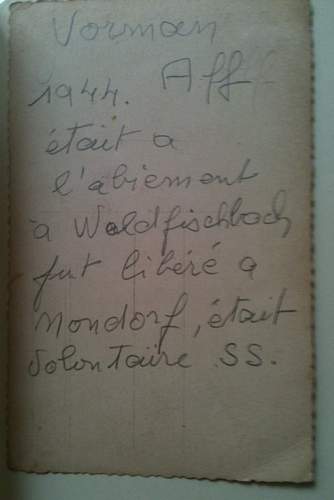 Vorman
1944. Aff
était a
l'abiemont
à Waldfischbach
fut libéré a
Mondorf, était
volontaire SS.